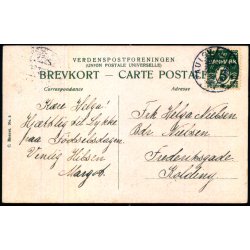 VERDENSPOSTFORENINGEN
(UNION POSTALE UNIVERSELLE)
BREVKORT - CARTE POSTALE
Correspondance
Adresse
Kære Helga!
Hjærtelig til Lykke
paa Födselsdagen.
Venlig Hilsen
Margot.
Frk Helga Nielsen
Adr Nielsen
Frederiksgade
Kolding
DANMARK
5